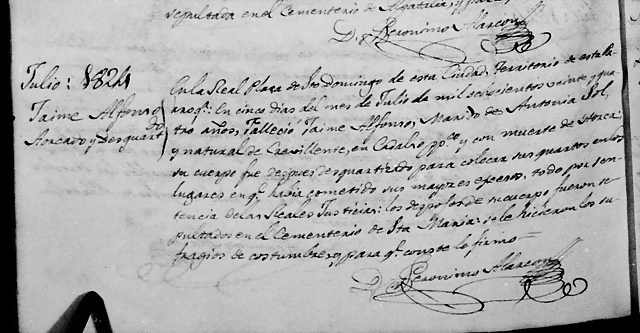 sepultada en el Cementerio de
Dr. Geronimo Alarcon
Julio: 1824
Jaime Alfonso
Aorcado y Desquartdo
En la Real Plaza de Sto Domingo de esta Ciudad, Territorio de esta Pa
rroqa. En cinco dias del mes de Julio de mil ochocientos veinte y qua
tro años, Fallecio Jaime Alfonso, Marido de Antonia Sol,
y natural de Crevillente, en Cadalso ppco. y con muerte de Horca;
su cuerpo fue despues desquartizado para colocar sus quartos en los
lugares en q. havia cometido sus mayores excesos, todo por sen-
tencia de las Reales Justicias: los despojos de su cuerpo fueron se-
pultados en el Cementerio de Sta Maria: se le hicieron los su-
fragios de costumbre, y para q. conste lo firmo =
Dr. Geronimo Alarcon